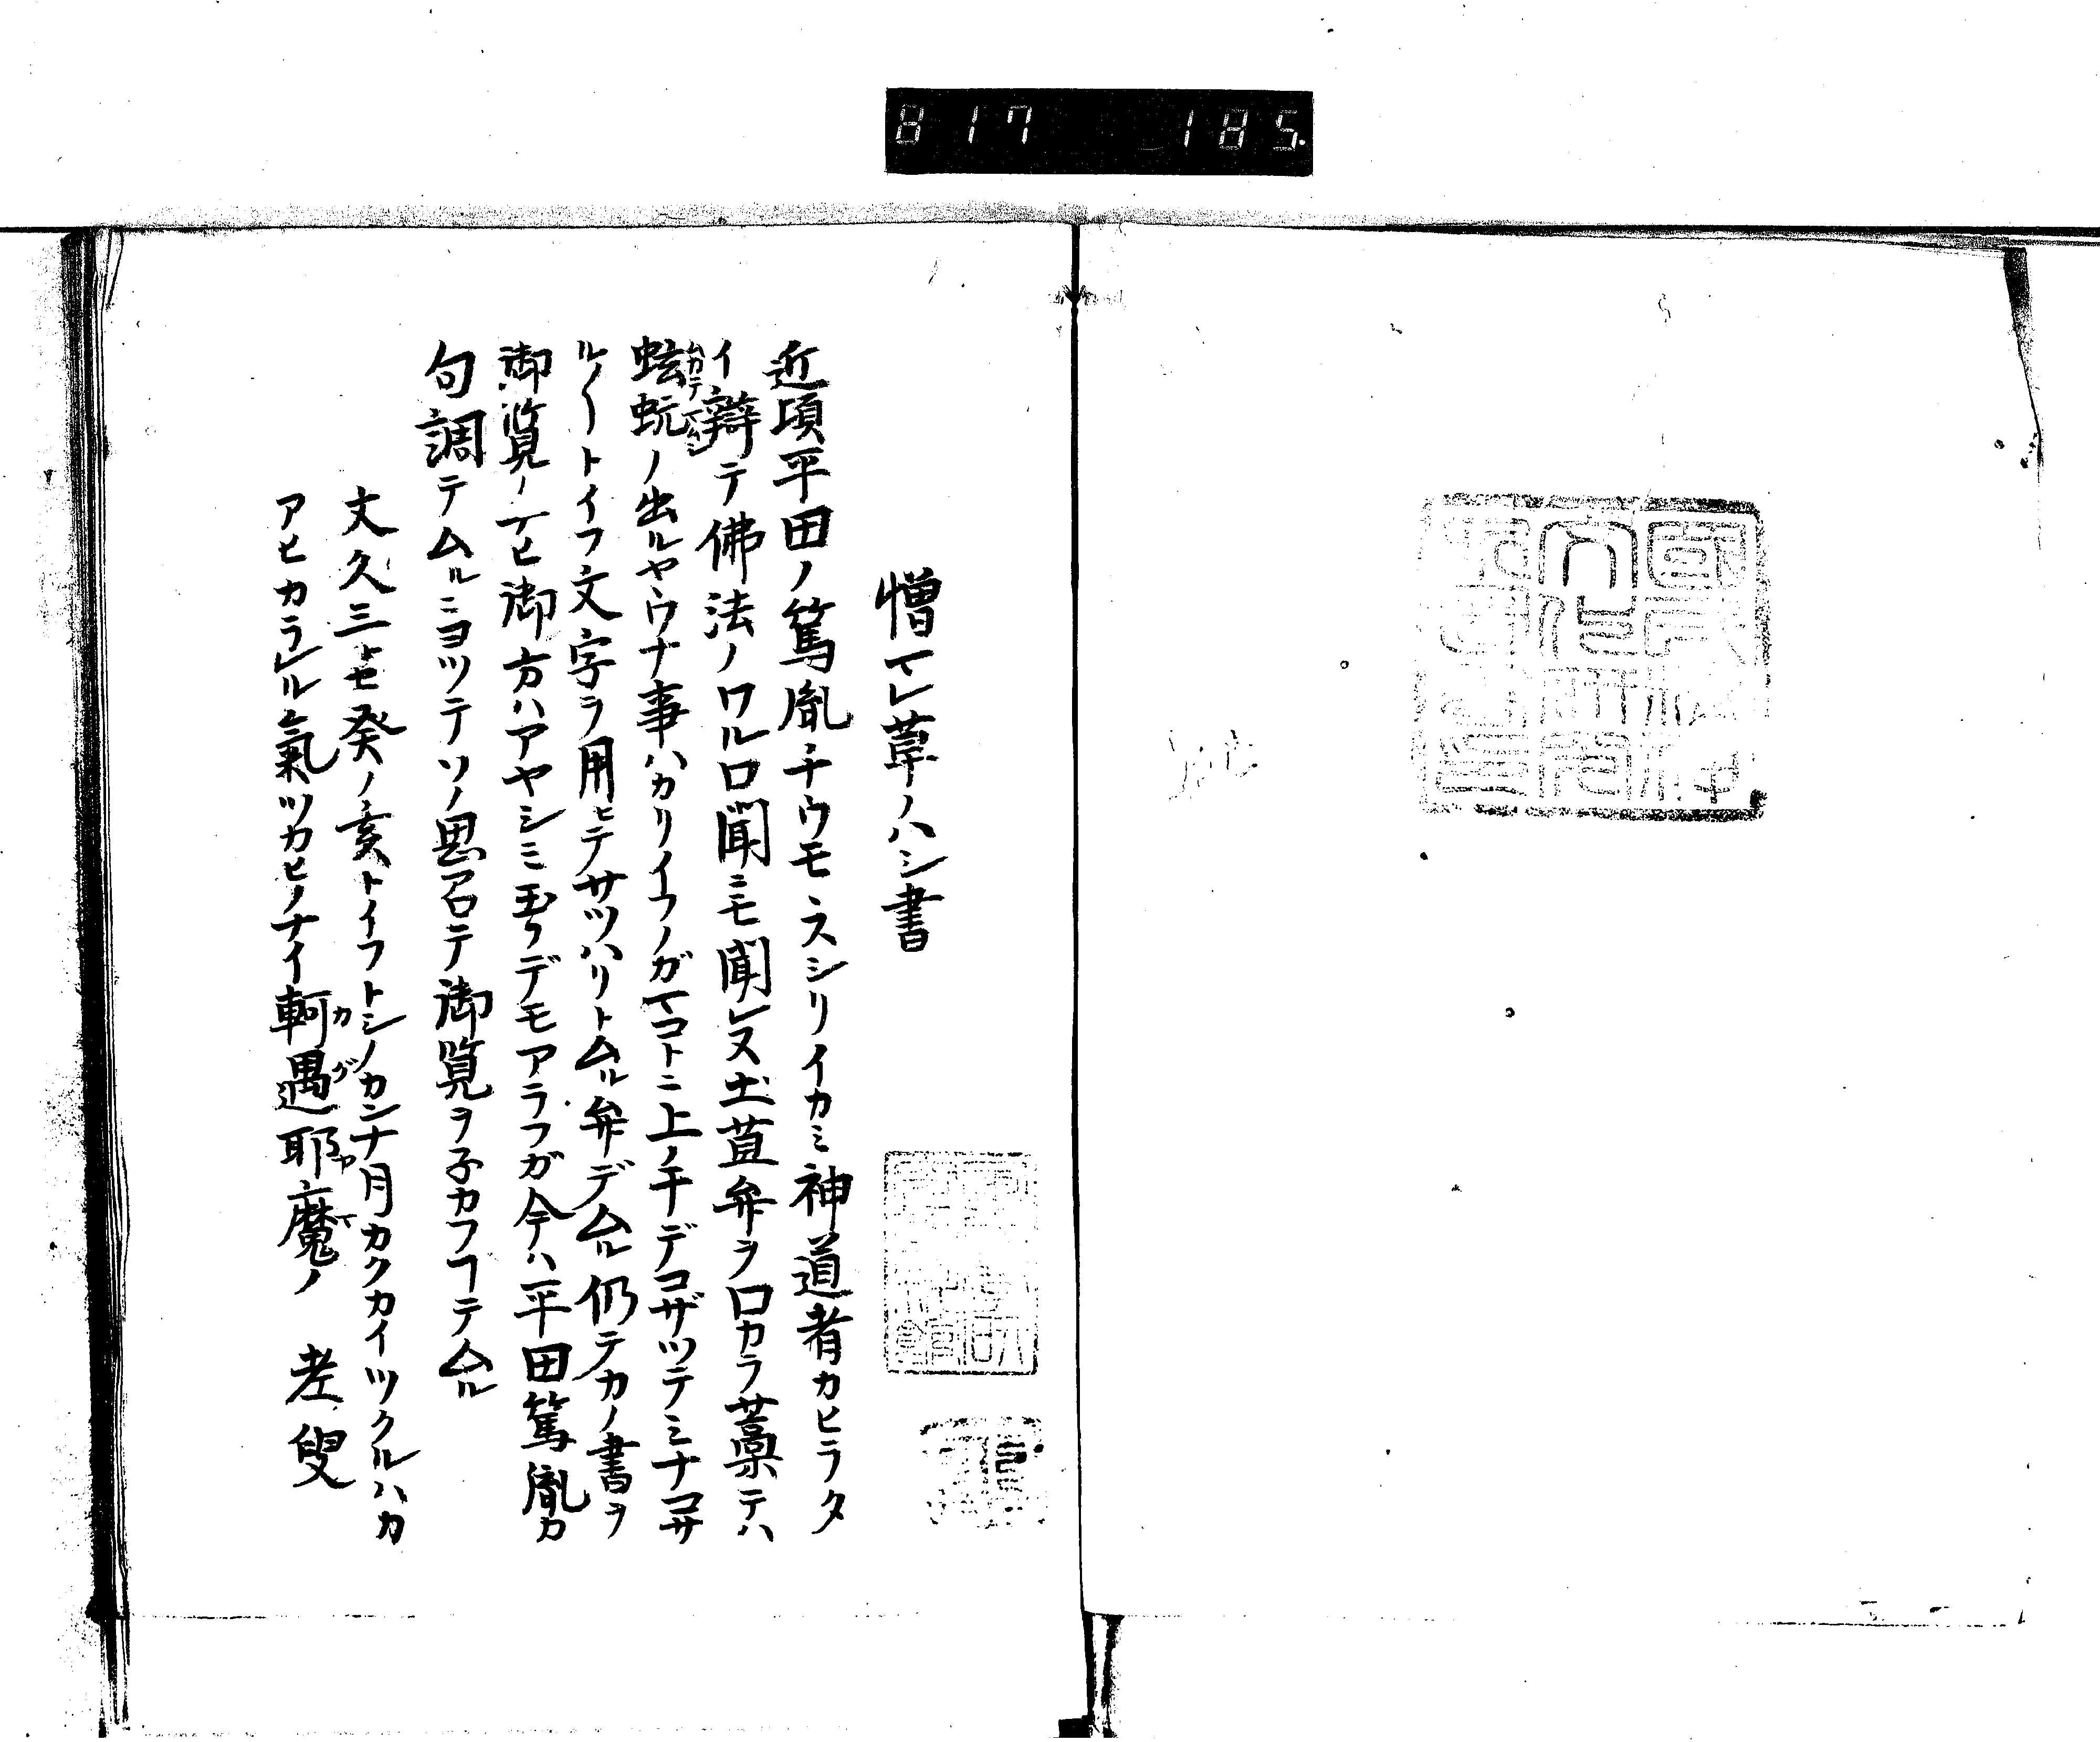 817 185.
憎マレ草ノハシ書
近頃平田ノ篤胤チウモノスシリイカミ神道者カヒラタ
イ辯テ佛法ノワル口聞ニモ聞レヌ土苴弁ヲ口カラ藁テハ
蚿蚖ノ出ルヤウナ事ハカリイフノガマコトニ上ノ干デコザツテミナコサ
ル〳〵トイフ文字ヲ用ヒテサツハリトムル弁デムル仍テカノ書ヲ
御覧ノナヒ御方ハアヤシミ玉フデモアラフガ今ハ平田篤胤カ
句調テムルニヨツテソノ思召テ御覧ヲ子カフコテムル
文久三トセ癸ノ亥トイフトシノカンナ月カクカイツクルハカ
アヒカラレル氣ツカヒノナイ軻遇耶魔ノ 老叟
カグヤマ